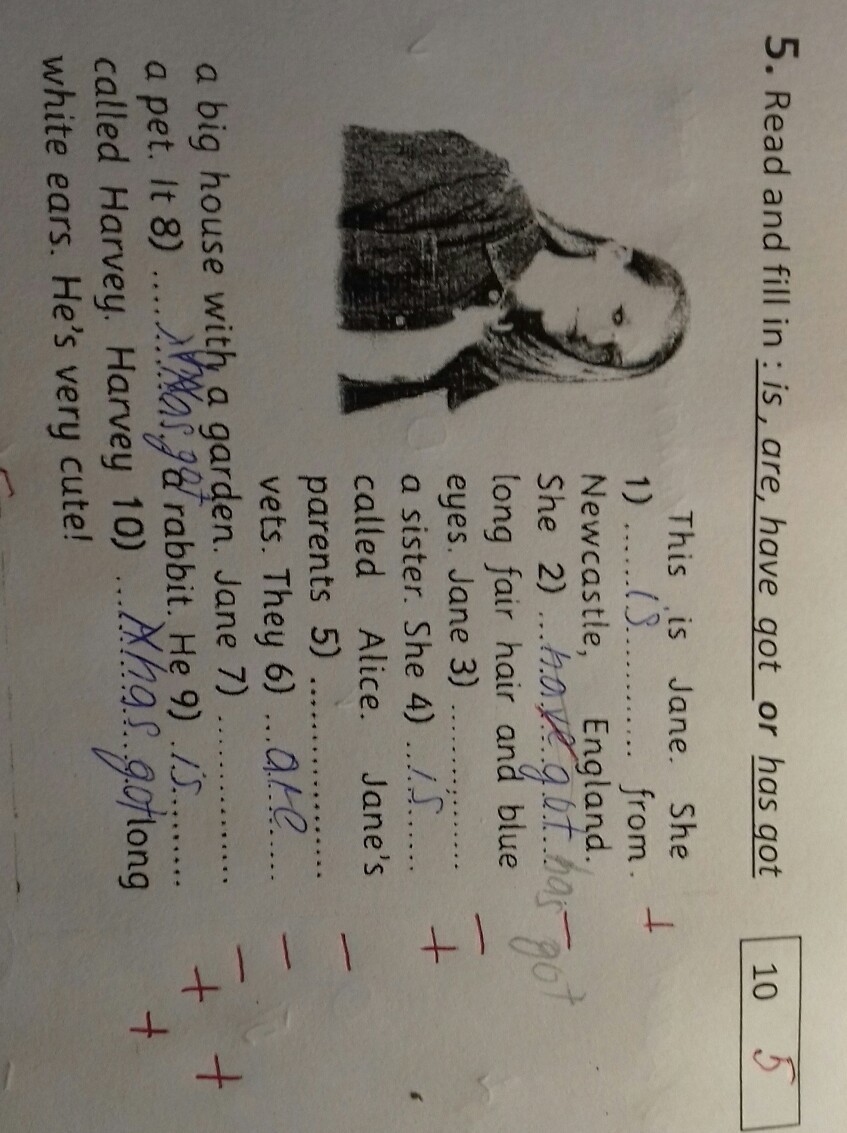 5. Read and fill in : is , are, have got or has got
10 5
This is Jane. She
1) ......is............ from. +
Newcastle, England.
She 2) ...have got... has got −
long fair hair and blue
eyes. Jane 3) ................ −
a sister. She 4) ...is....... +
called Alice. Jane's
parents 5) .................... −
vets. They 6) ...are....... −
a big house with a garden. Jane 7) ................ −
a pet. It 8) ......has got a rabbit. He 9) .is......... + +
called Harvey. Harvey 10) ....has got long +
white ears. He's very cute!